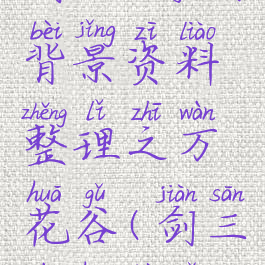 bèi jǐng zī liào
背景资料
zhěng lǐ zhī wàn
整理之万
huā gǔ jiàn sān
花谷(剑三